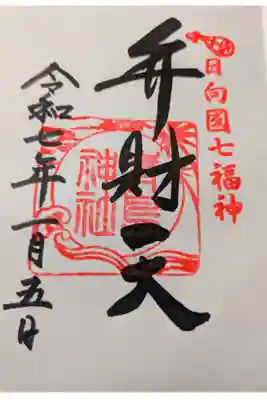 日向國七福神
弁財天
神社
令和七年一月五日